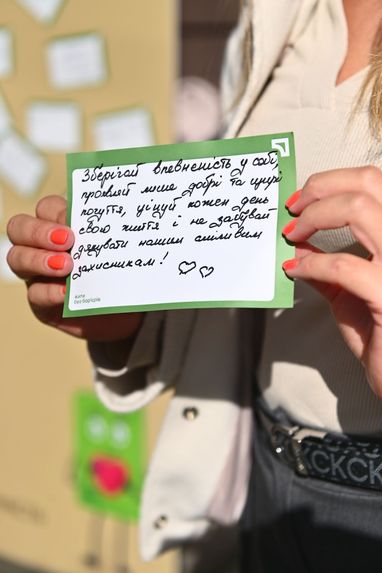 Зберігай впевненість у собі,
проявляй лише добрі та щирі
почуття, цінуй кожен день
свого життя і не забувай
дякувати нашим сміливим
захисникам!
жити
без бар'єрів